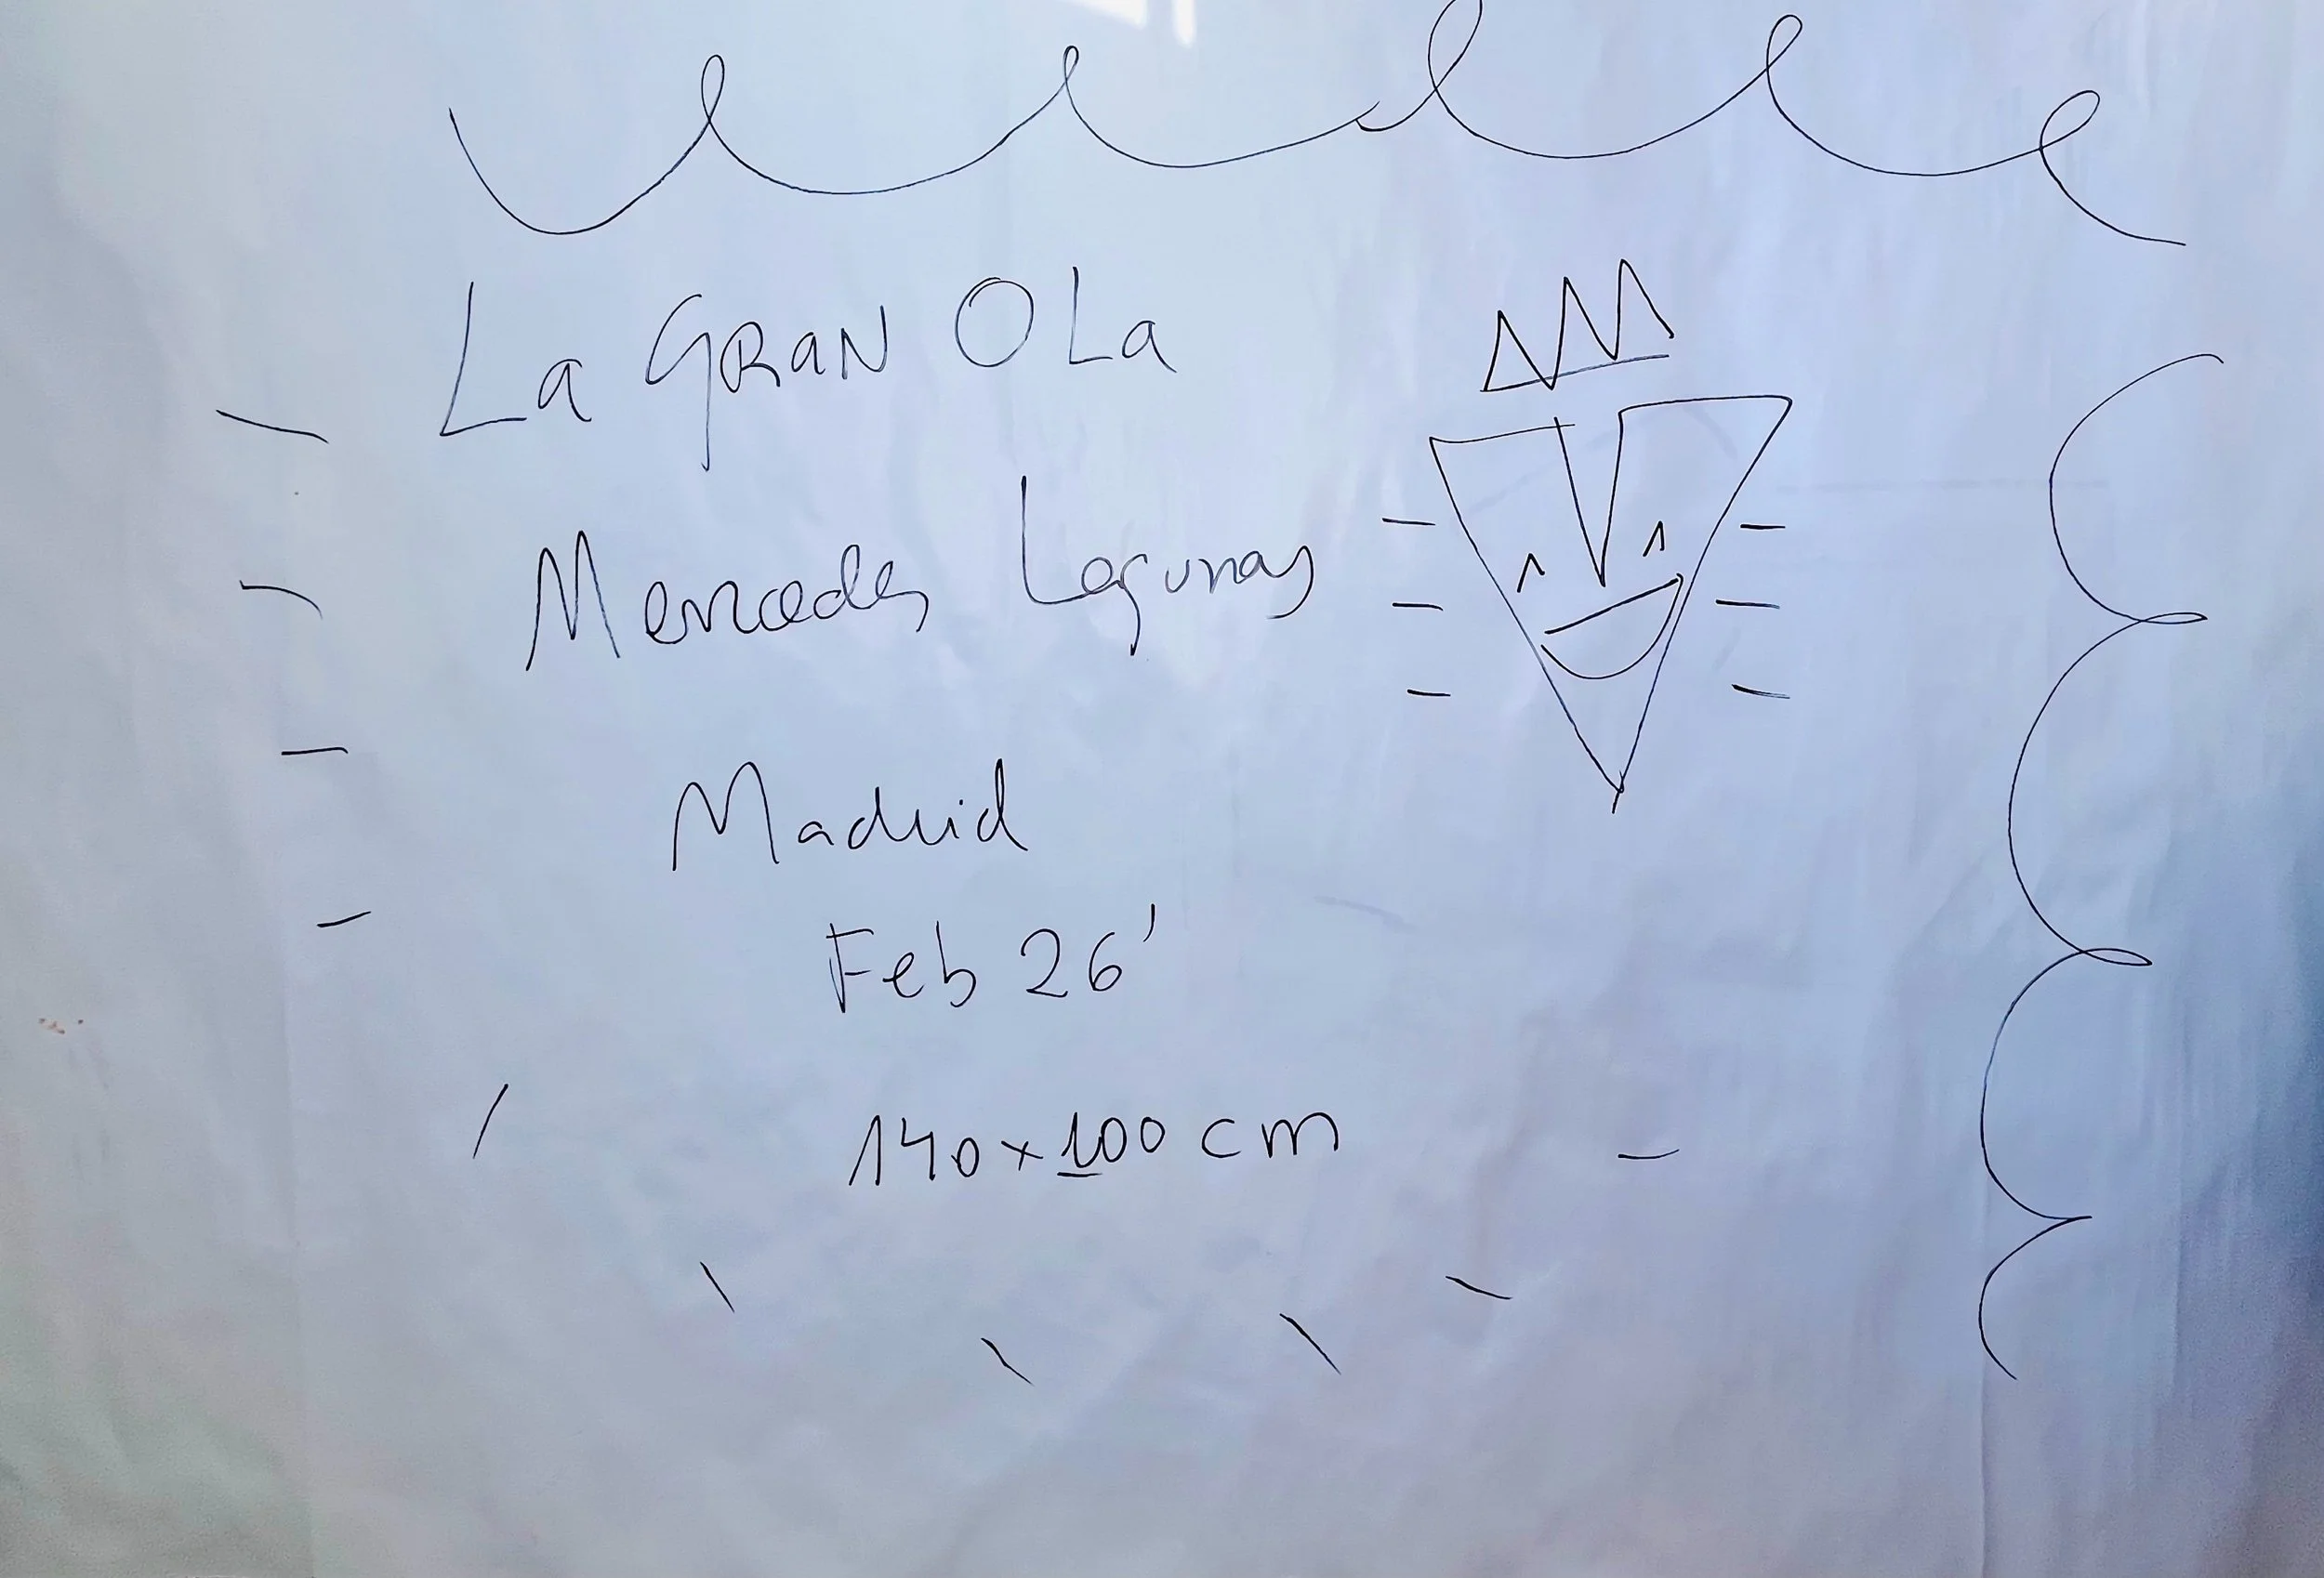 La GRaN OLa
Mercedes Lagunas
Madrid
Feb 26'
140x100 cm